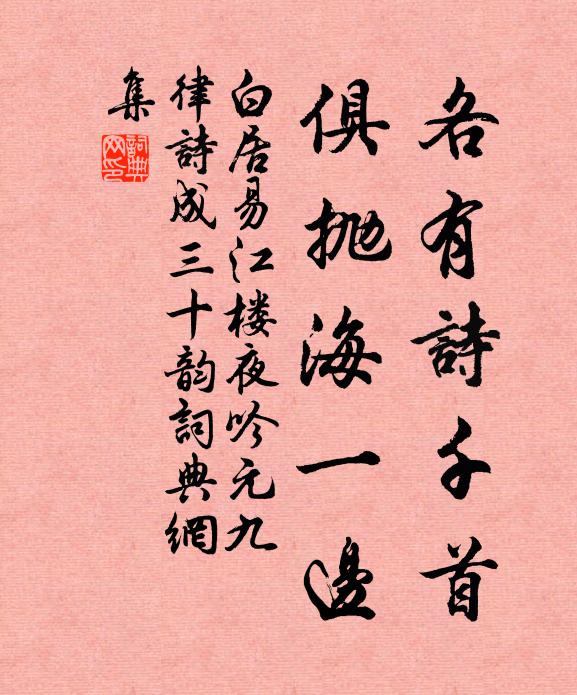 各有詩千首
俱抛海一邊
白居易江楼夜吟元九
律詩成三十韵詞典網
集
詞典
网印